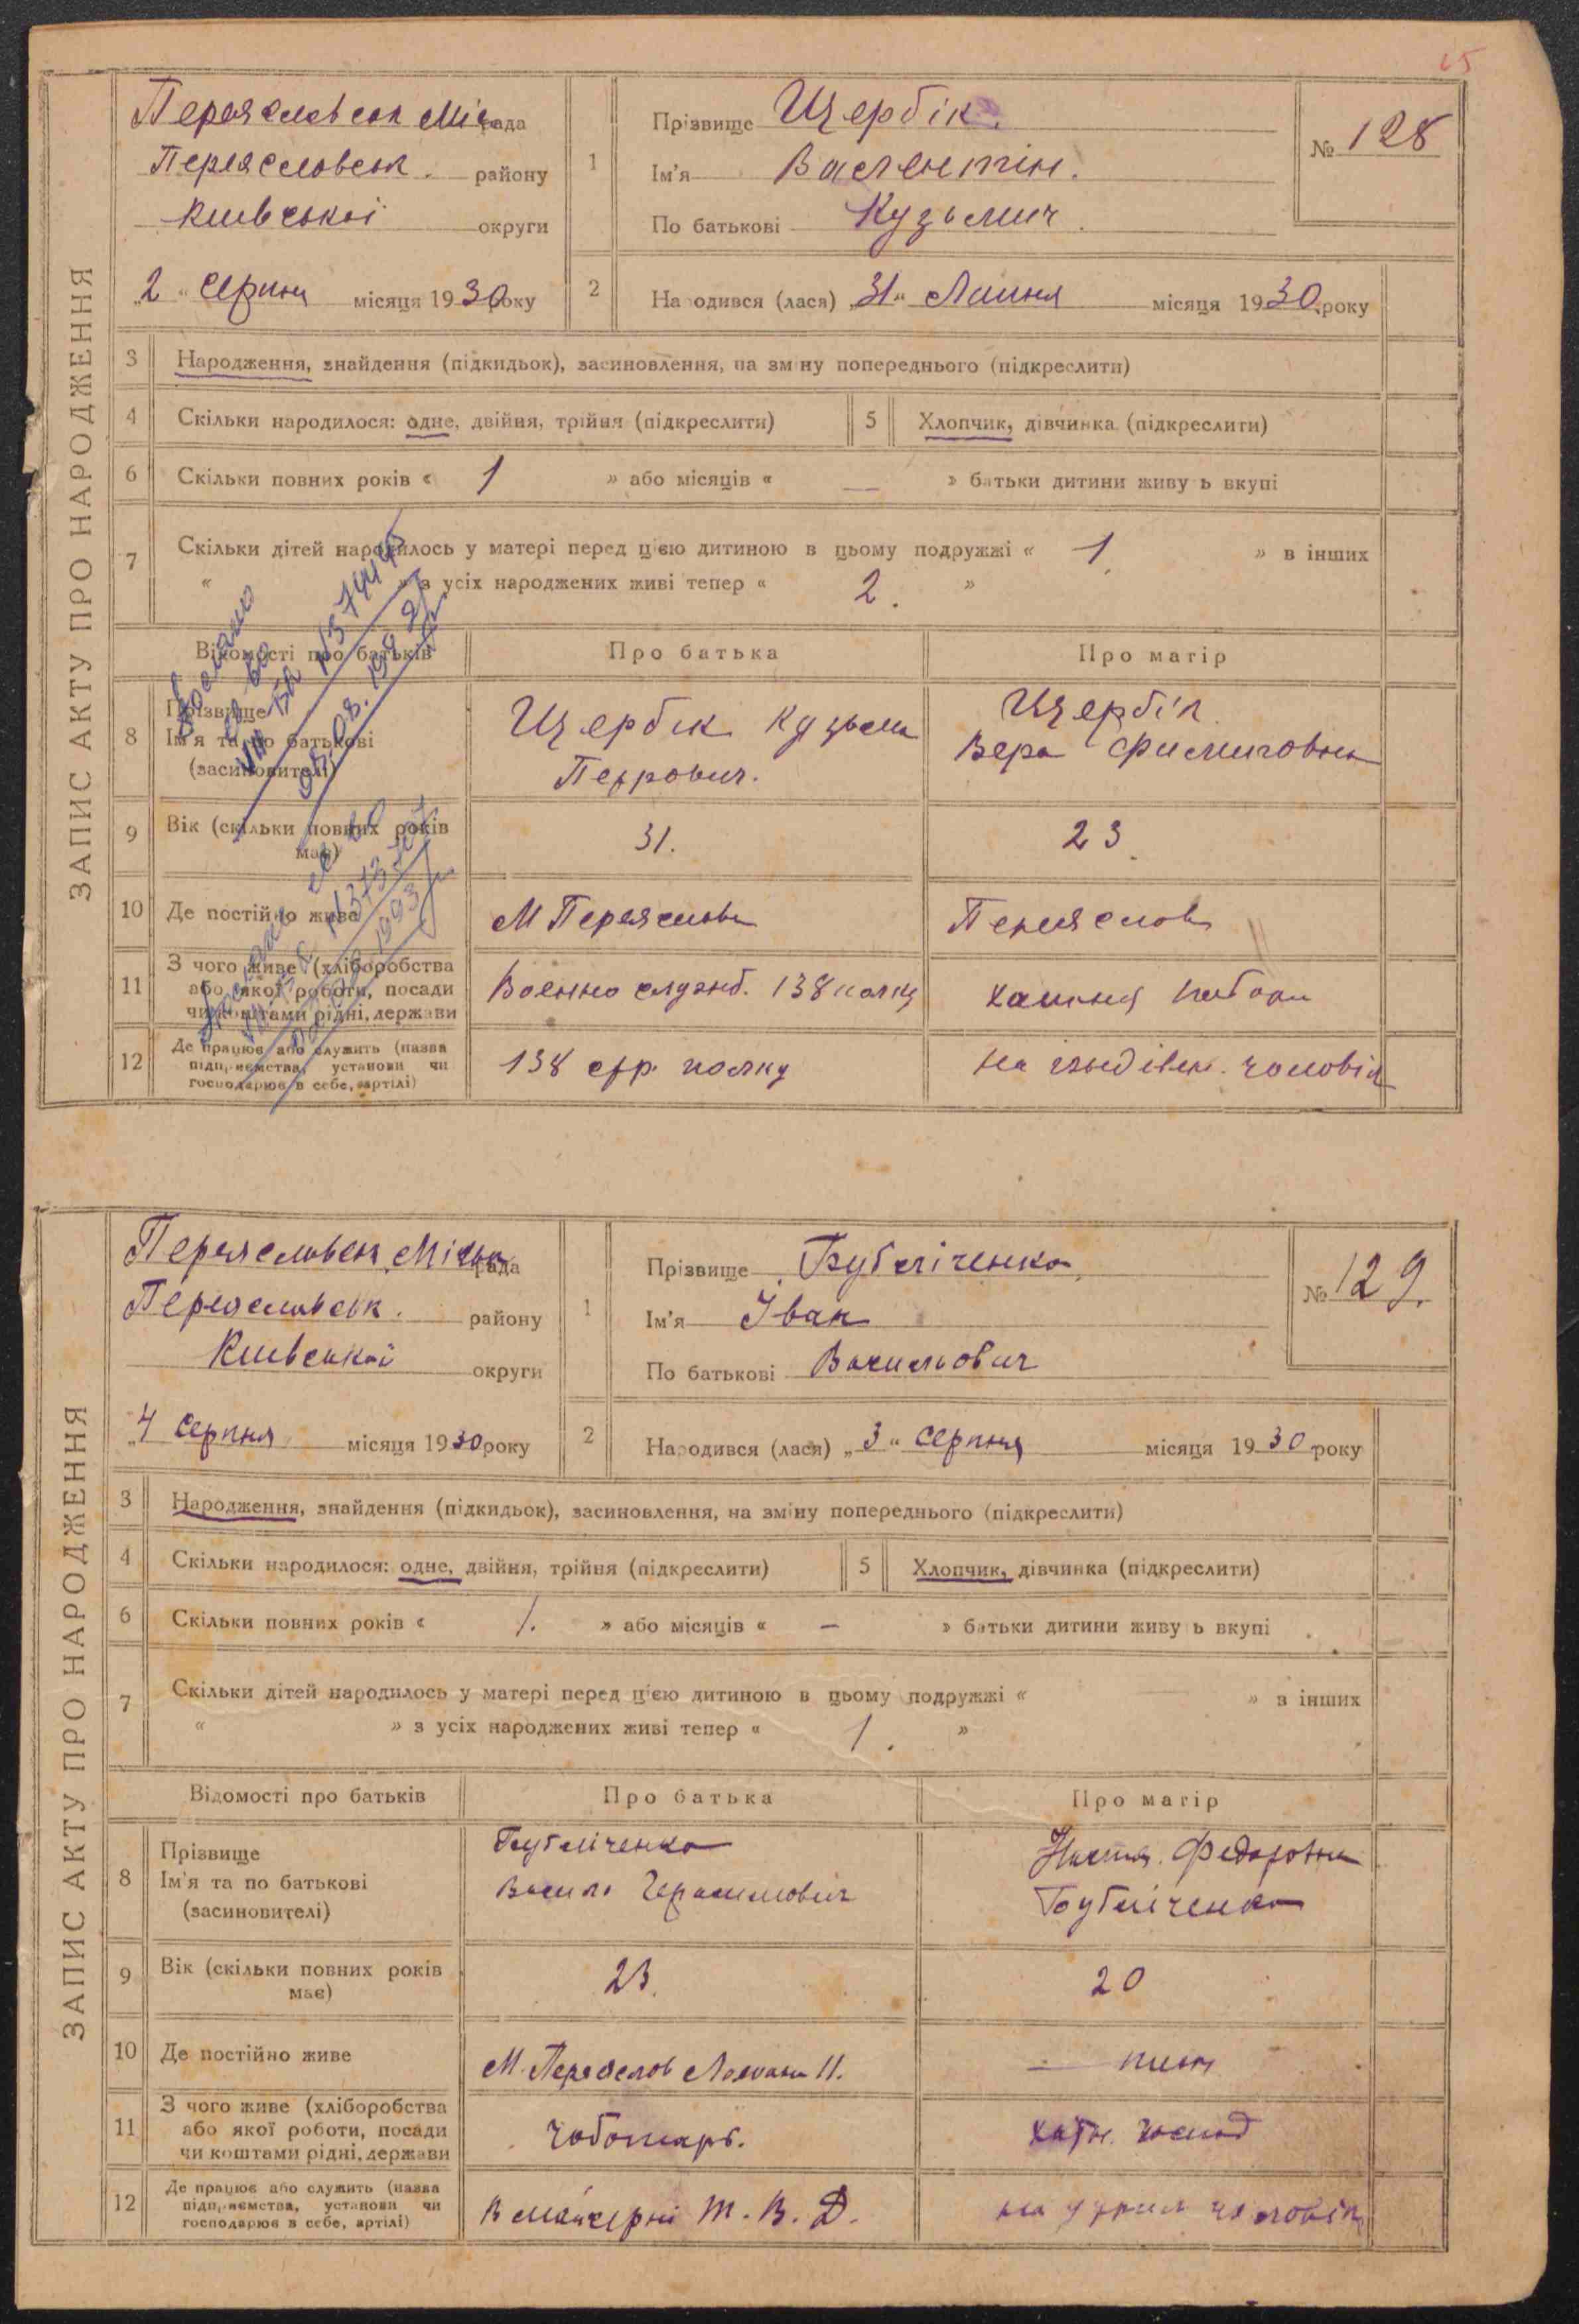 65
ЗАПИС АКТУ ПРО НАРОДЖЕННЯ
Переяславськ Міс рада
Переяславськ. району
Київської округи
„2“ Серпня місяця 1930 року
1
Прізвище Щербік.
Ім'я Валентін.
По батькові Кузьмич.
№ 128
2 Народився (лася) „31“ Липня місяця 1930 року
3 Народження, знайдення (підкидьок), засиновлення, на зміну попереднього (підкреслити)
4 Скільки народилося: одне, двійня, трійня (підкреслити) 5 Хлопчик, дівчинка (підкреслити)
6 Скільки повних років « 1 » або місяців « — » батьки дитини живуть вкупі
7 Скільки дітей народилось у матері перед цією дитиною в цьому подружжі « 1. » в інших
« » з усіх народжених живі тепер « 2. »
Відомості про батьків Про батька Про матір
8 Прізвище
Ім'я та по батькові
(засиновителі)
Щербік Кузьма
Петрович.
Щербік
Вера
9 Вік (скільки повних років
має)
31. 23
10 Де постійно живе М Переяслов Переяслов
11 З чого живе (хліборобства
або якої роботи, посади
чи коштами рідні, держави
Военно служб. 138 полку
12 Де працює або служить (назва
підприємства, установи чи
господарює в себе, артілі)
138 стр. полку
На іждівен. чоловік
ЗАПИС АКТУ ПРО НАРОДЖЕННЯ
Переяславськ Міська рада
Переяславськ. району
Київської округи
„4 Серпня місяця 1930 року
1
Прізвище Бубліченко
Ім'я Іван
По батькові Васильович
№ 129.
2 Народився (лася) „3“ Серпня місяця 1930 року
3 Народження, знайдення (підкидьок), засиновлення, на зміну попереднього (підкреслити)
4 Скільки народилося: одне, двійня, трійня (підкреслити) 5 Хлопчик, дівчинка (підкреслити)
6 Скільки повних років « 1. » або місяців « — » батьки дитини живуть вкупі
7 Скільки дітей народилось у матері перед цією дитиною в цьому подружжі « » в інших
« » з усіх народжених живі тепер « 1. »
Відомості про батьків Про батька Про матір
8 Прізвище
Ім'я та по батькові
(засиновителі)
Бубліченко
Василь Герасимович
Настя Федоровна
Бубліченко
9 Вік (скільки повних років
має)
23. 20
10 Де постійно живе М. Переяслов 11.
11 З чого живе (хліборобства
або якої роботи, посади
чи коштами рідні, держави
Чоботарь.
хатн. господ
12 Де працює або служить (назва
підприємства, установи чи
господарює в себе, артілі)
В майстерні Т. В. Д.
на утрим чоловік